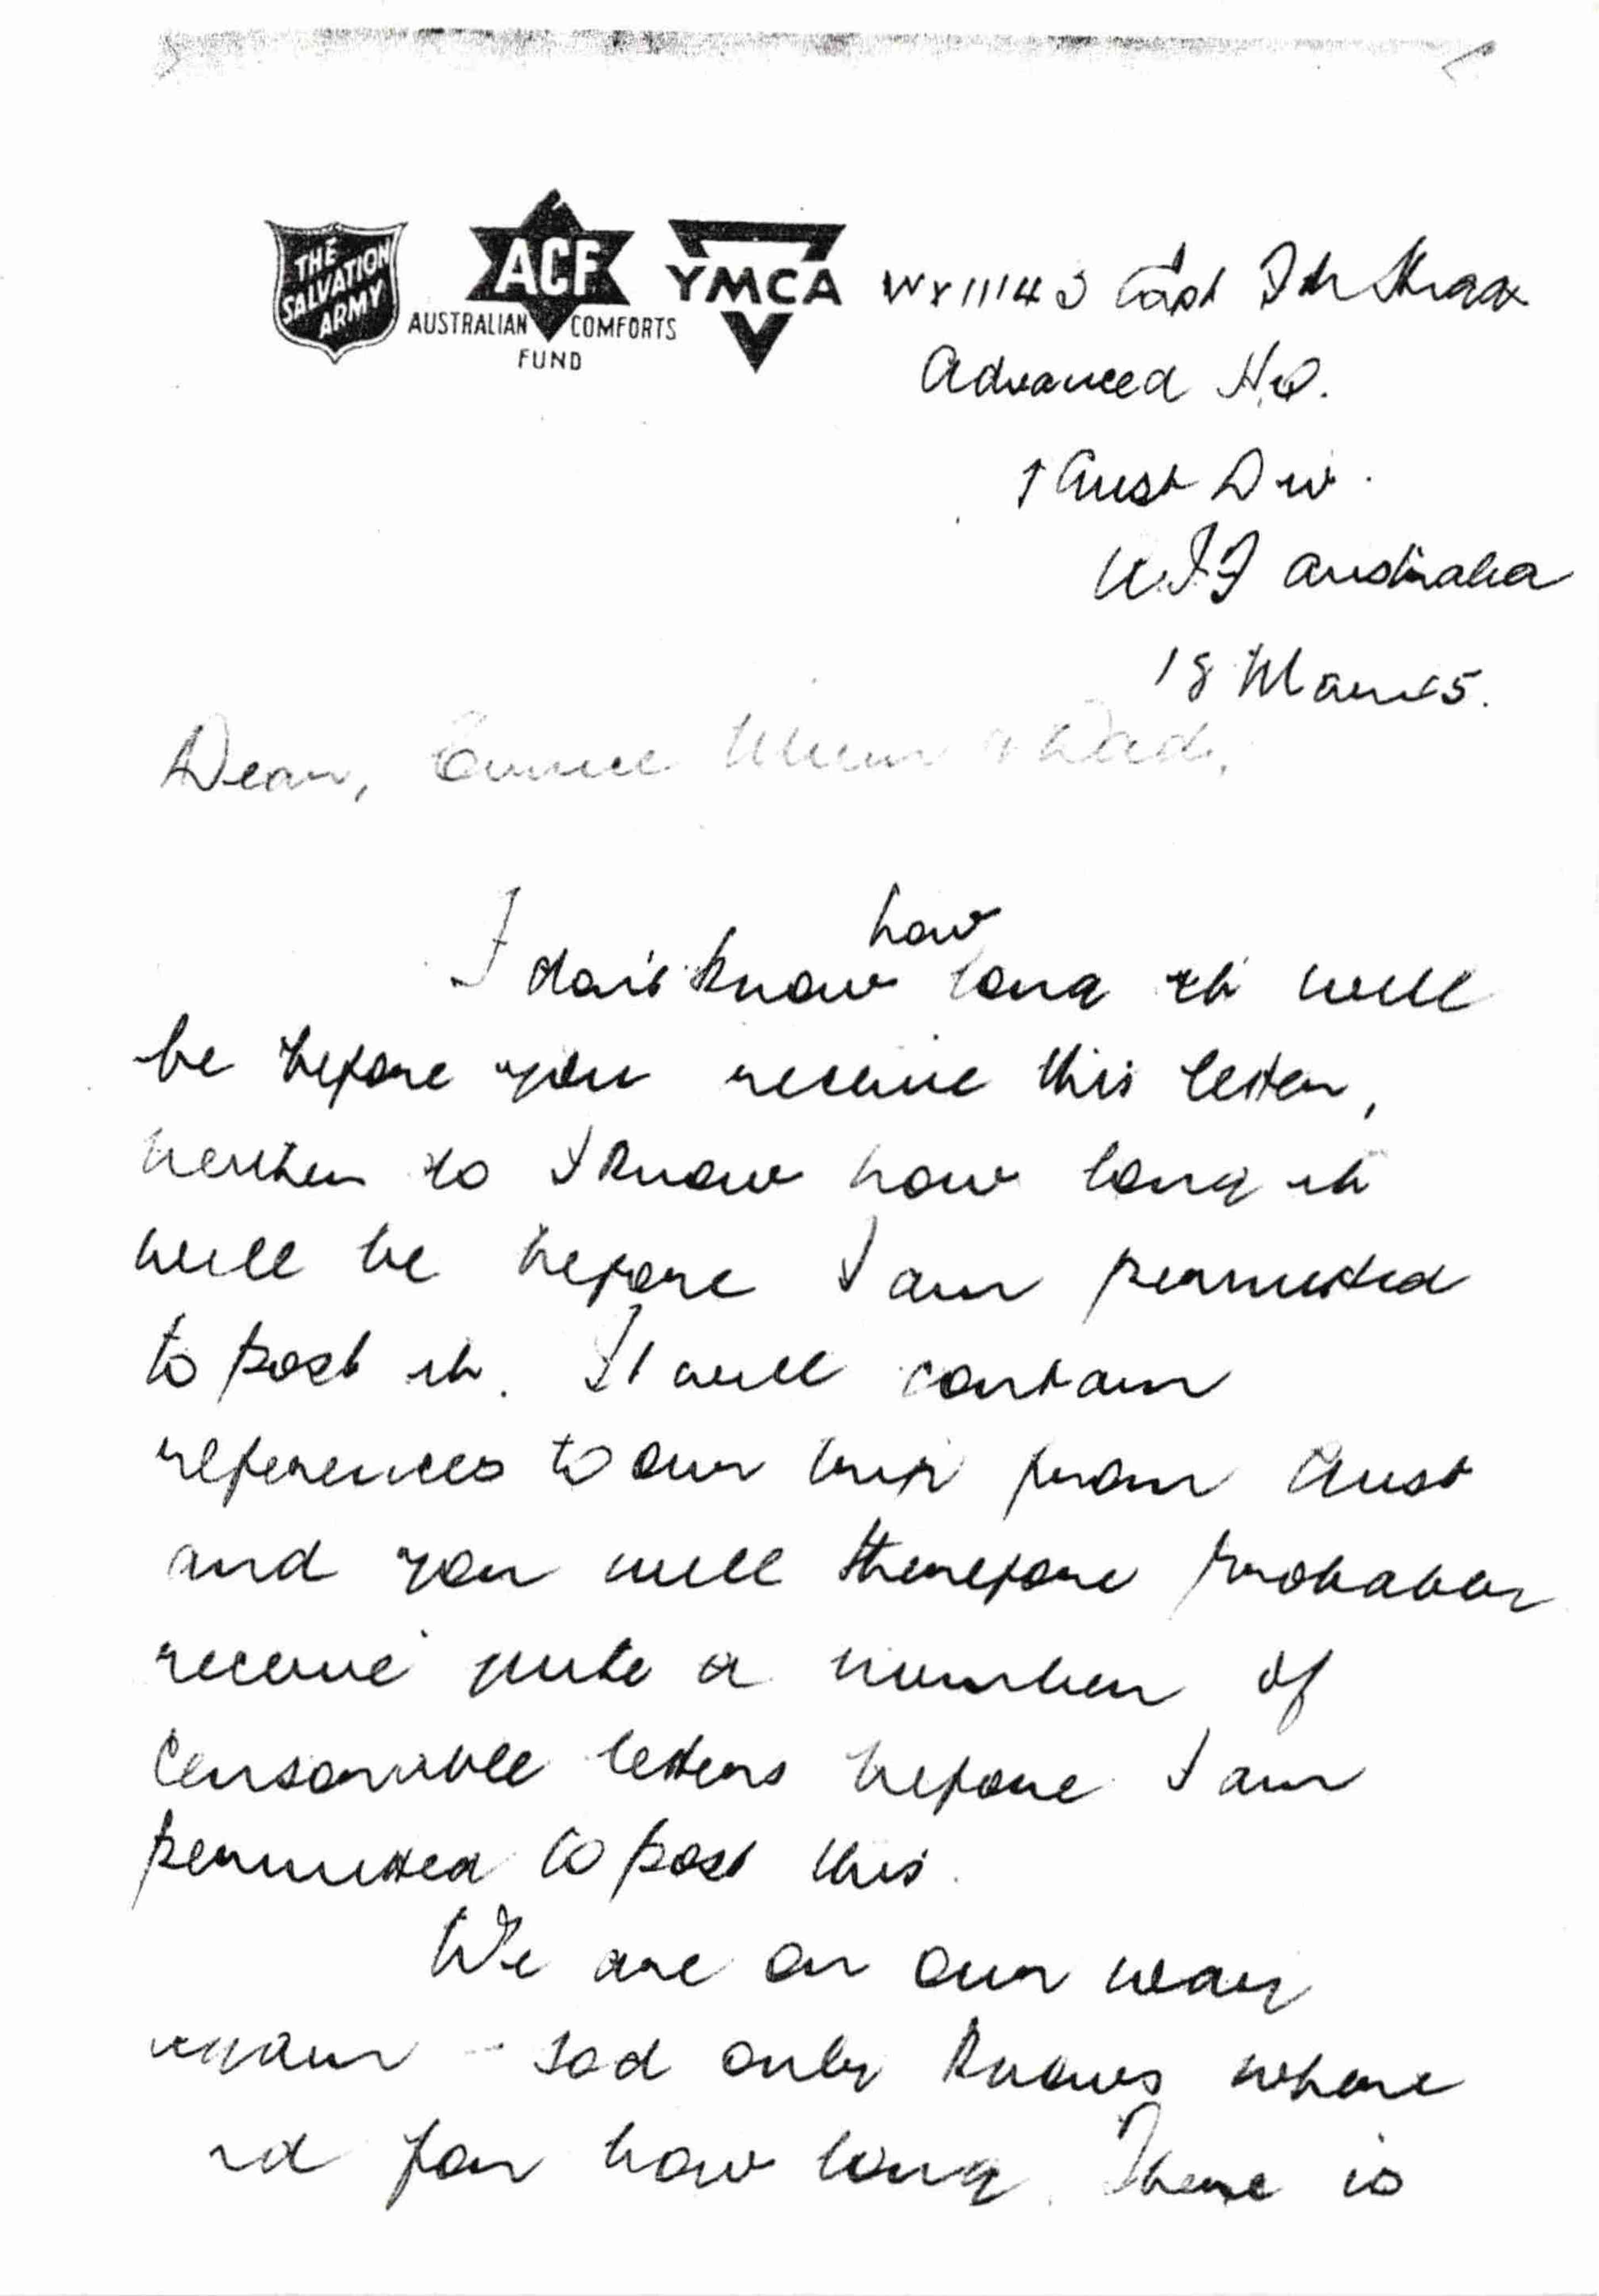 THE SALVATION ARMY
ACF
AUSTRALIAN COMFORTS FUND
YMCA
WX11143 Capt
Advanced H.Q.
7 Aust Div.
AIF Australia
18 Mar 45.
Dear, Mum & Dad,
how
I don't know long it will
be before you receive this letter,
neither do I know how long it
will be before I am permitted
to post it. It will contain
references to our trip from Aust
and you will therefore probably
receive quite a number of
censorable letters before I am
permitted to post this.
We are on our way
again - God only knows where
nd for how long. There is